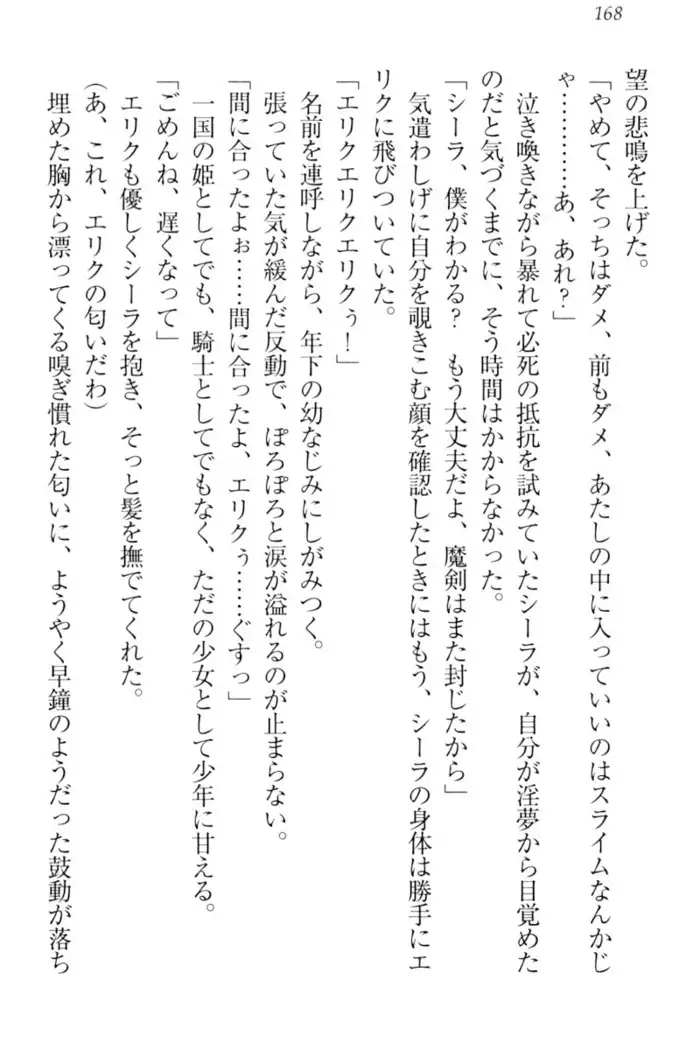 168
望の悲鳴を上げた。
「やめて、そっちはダメ、前もダメ、あたしの中に入っていいのはスライムなんかじ
ゃ…………あ、あれ？」
泣き喚きながら暴れて必死の抵抗を試みていたシーラが、自分が淫夢から目覚めた
のだと気づくまでに、そう時間はかからなかった。
「シーラ、僕がわかる？　もう大丈夫だよ、魔剣はまた封じたから」
気遣わしげに自分を覗きこむ顔を確認したときにはもう、シーラの身体は勝手にエ
リクに飛びついていた。
「エリクエリクエリクぅ！」
名前を連呼しながら、年下の幼なじみにしがみつく。
張っていた気が緩んだ反動で、ぽろぽろと涙が溢れるのが止まらない。
「間に合ったよぉ……間に合ったよ、エリクぅ……ぐすっ」
一国の姫としてでも、騎士としてでもなく、ただの少女として少年に甘える。
「ごめんね、遅くなって」
エリクも優しくシーラを抱き、そっと髪を撫でてくれた。
(あ、これ、エリクの匂いだわ)
埋めた胸から漂ってくる嗅ぎ慣れた匂いに、ようやく早鐘のようだった鼓動が落ち